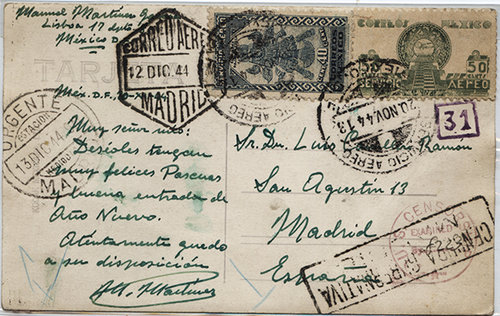 Manuel Martínez
Lisboa 17
México D.
TARJETA
CORREO AEREO
12 DIC. 44
MADRID
URGENTE
13 DIC 44
MA
Méx. D.F.
Muy señor mío:
Deseoles tengan
muy felices Pascuas
y buena entrada de
Año Nuevo.
Atentamente quedo
a su disposición
M. Martínez
40
CORREOS MEXICO
50 50
AEREO
SERVICIO AEREO
20. NOV. 44. 13
31
Sr. Dn. Luis Ramón
San Agustín 13
Madrid
España
CENSOR
EXAMINED
CENSURA GUBERNATIVA